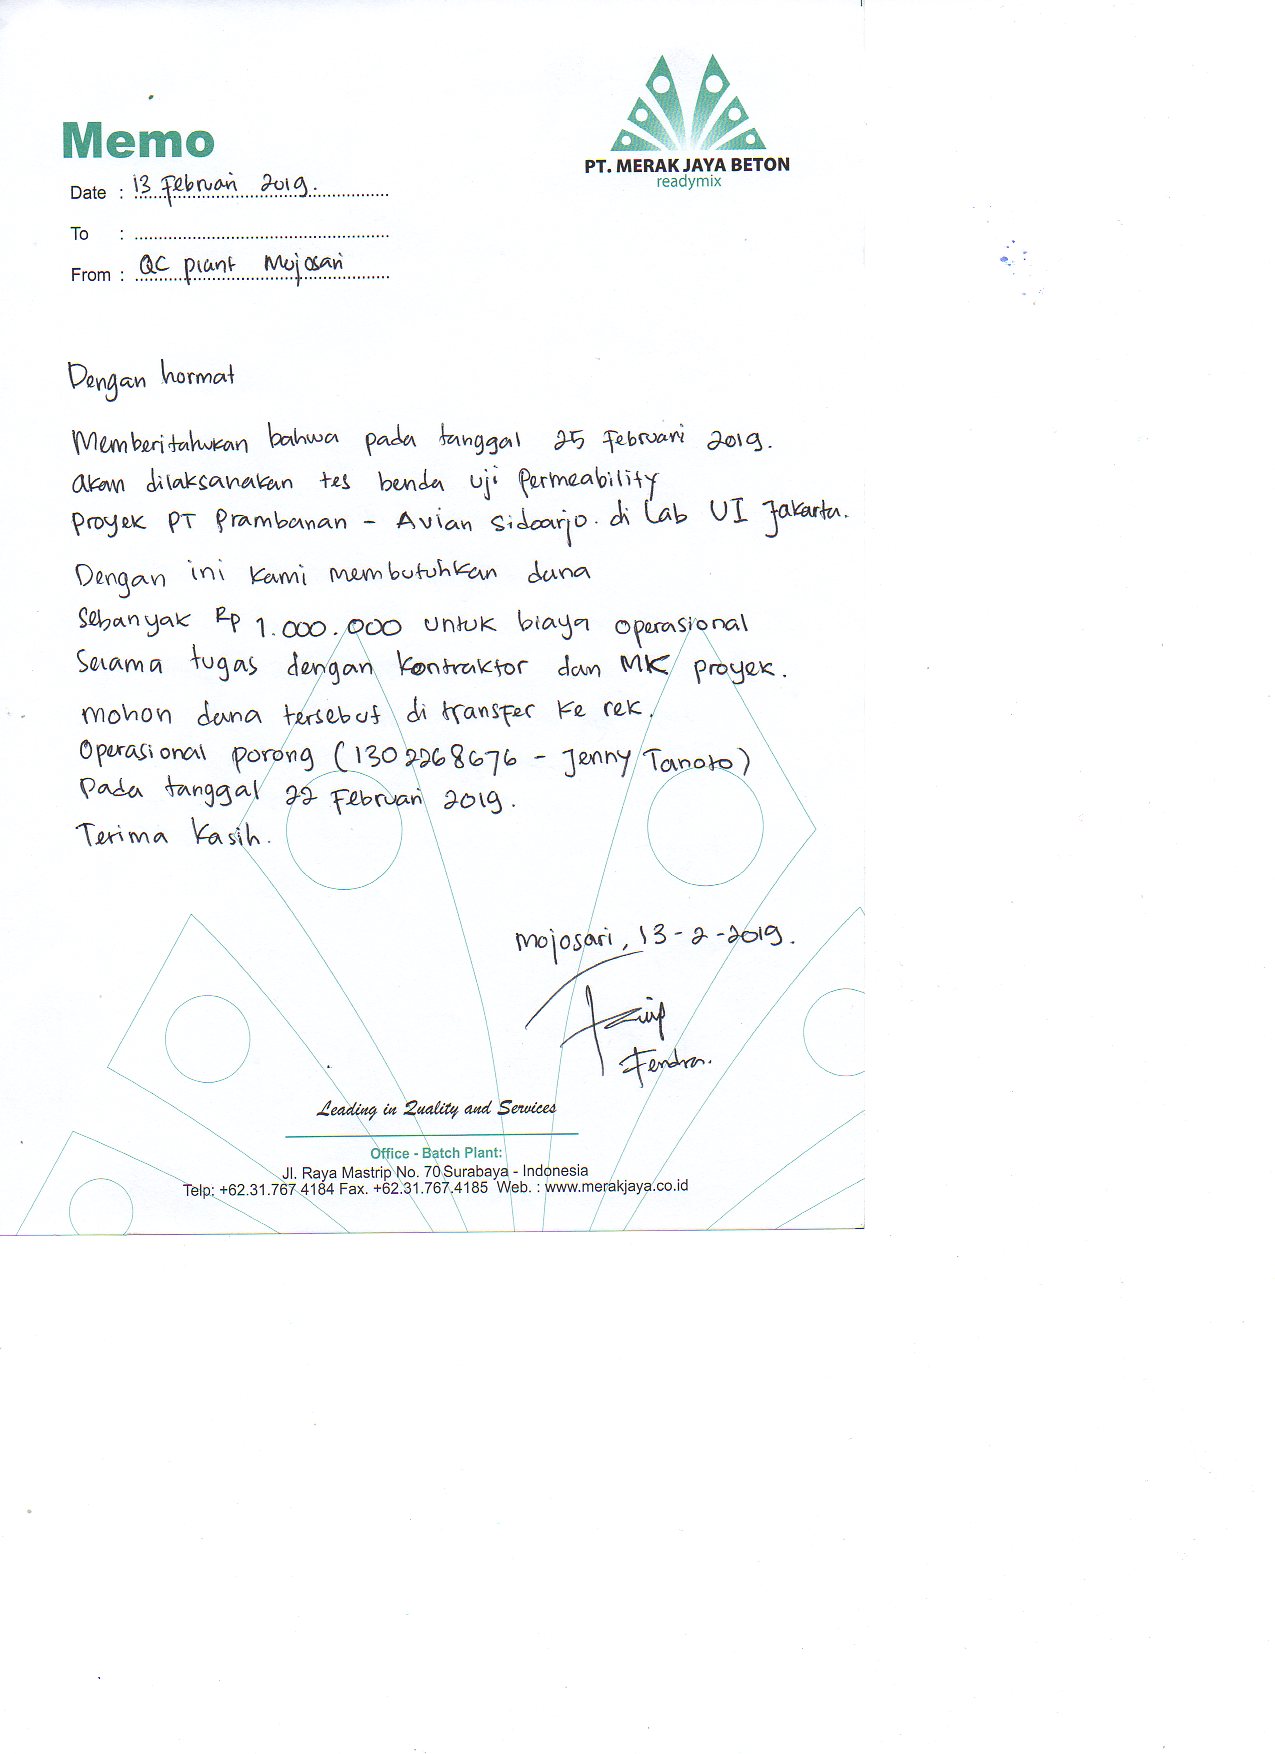 Memo
PT. MERAK JAYA BETON
readymix
Date : 13 Februari 2019.
To :
From : QC plant Mojosari
Dengan hormat
Memberitahukan bahwa pada tanggal 25 Februari 2019.
akan dilaksanakan tes benda uji Permeability
Proyek PT Prambanan - Avian Sidoarjo. di Lab UI Jakarta.
Dengan ini kami membutuhkan dana
Sebanyak Rp 1.000.000 untuk biaya operasional
Selama tugas dengan kontraktor dan MK proyek.
mohon dana tersebut di transfer ke rek.
Operasional porong (1302268676 - Jenny Tanoto)
Pada tanggal 22 Februari 2019.
Terima Kasih.
Mojosari, 13-2-2019.
Fendra.
Leading in Quality and Services
Office - Batch Plant:
Jl. Raya Mastrip No. 70 Surabaya - Indonesia
Telp: +62.31.767 4184 Fax. +62.31.767.4185 Web. : www.merakjaya.co.id